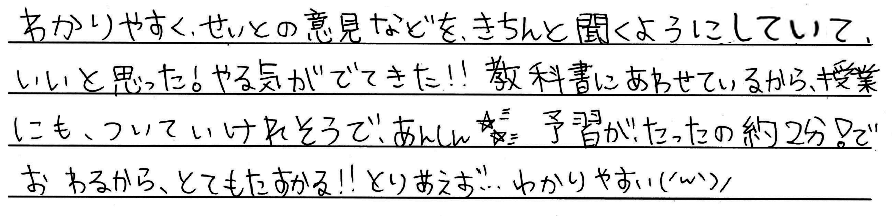 わかりやすく、せいとの意見などを、きちんと聞くようにしていて、
いいと思った!やる気がでてきた!!教科書にあわせているから、授業
にも、ついていけれそうで、あんしん☆☆ 予習が、たったの約2分!で
おわるから、とてもたすかる!!とりあえず… わかりやすい(^w^)/